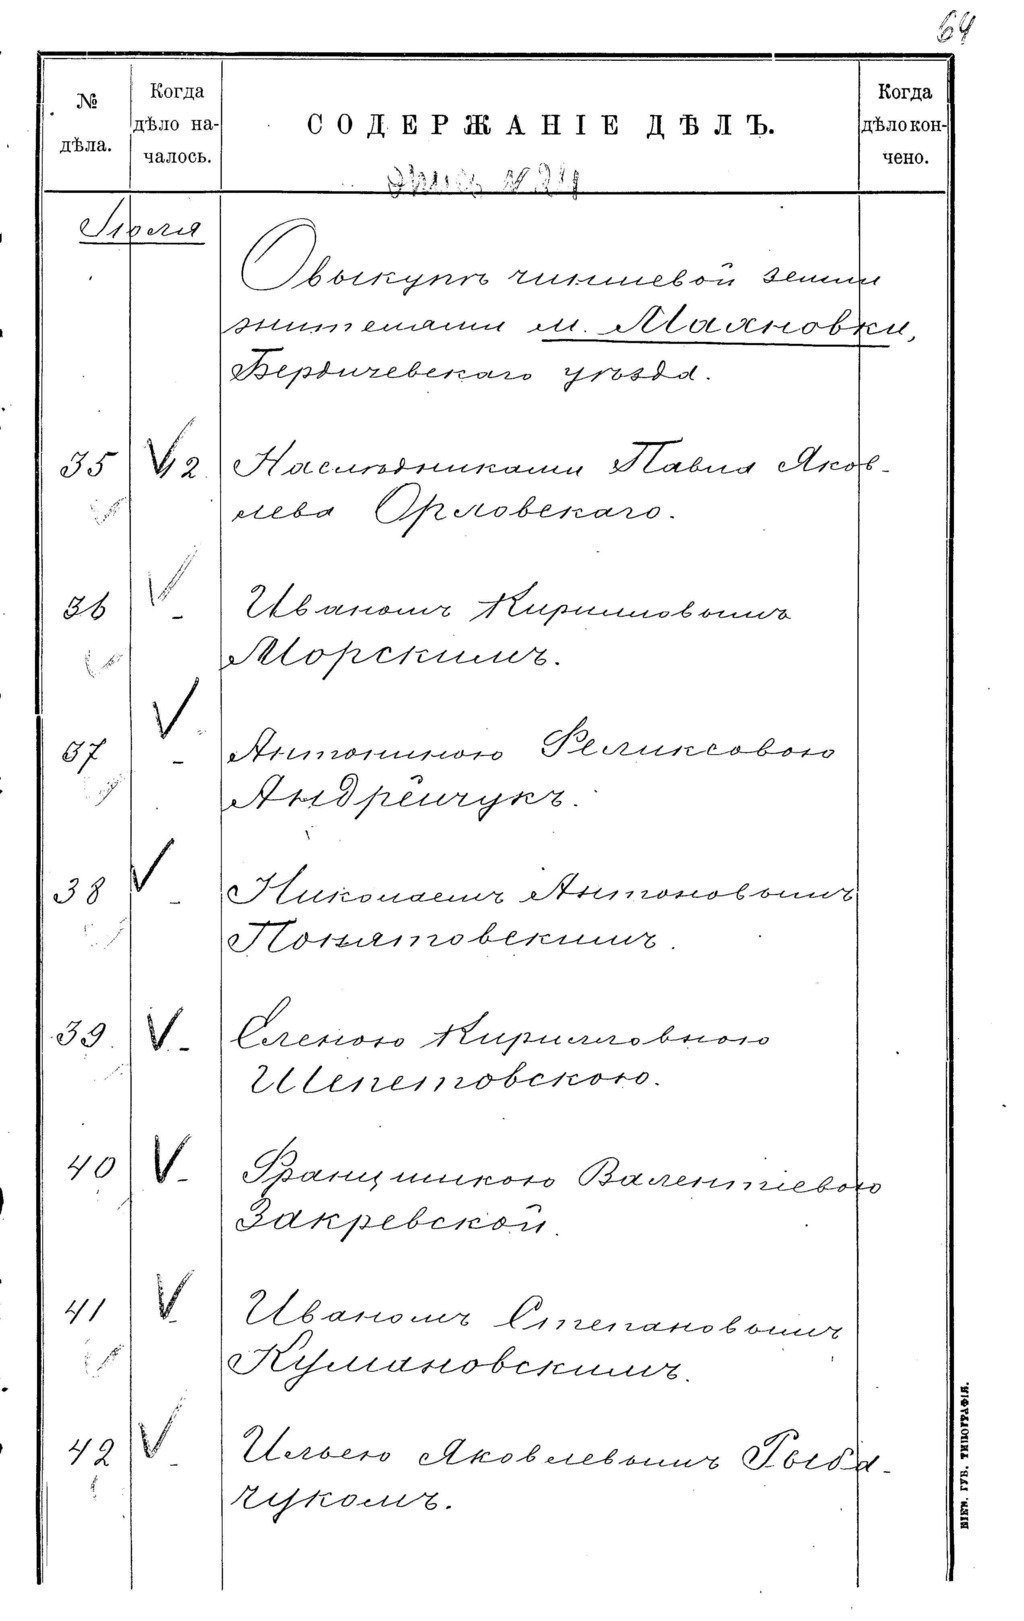 64
№ дѣла.
Когда дѣло началось.
СОДЕРЖАНІЕ ДѢЛЪ.
Когда дѣло кончено.
Іюля
О выкупѣ чиншевой земли
жителями м. Махновки,
Бердичевскаго уѣзда.
35 12 Наслѣдниками Павла Яков-
лева Орловскаго.
36 - Иваномъ Кирилловымъ
Морскимъ.
37 - Антониною Феликсовою
Андрейчукъ.
38 - Николаемъ Антоновымъ
Понятовскимъ.
39. - Еленою Кирилловною
Шепетовскою.
40 - Францишкою Валентіевою
Закревской.
41 - Иваномъ Степановымъ
Кумановскимъ.
42 - Ильею Яковлевымъ Рыба-
чукомъ.
КІЕВ. ГУБ. ТИПОГРАФІЯ.